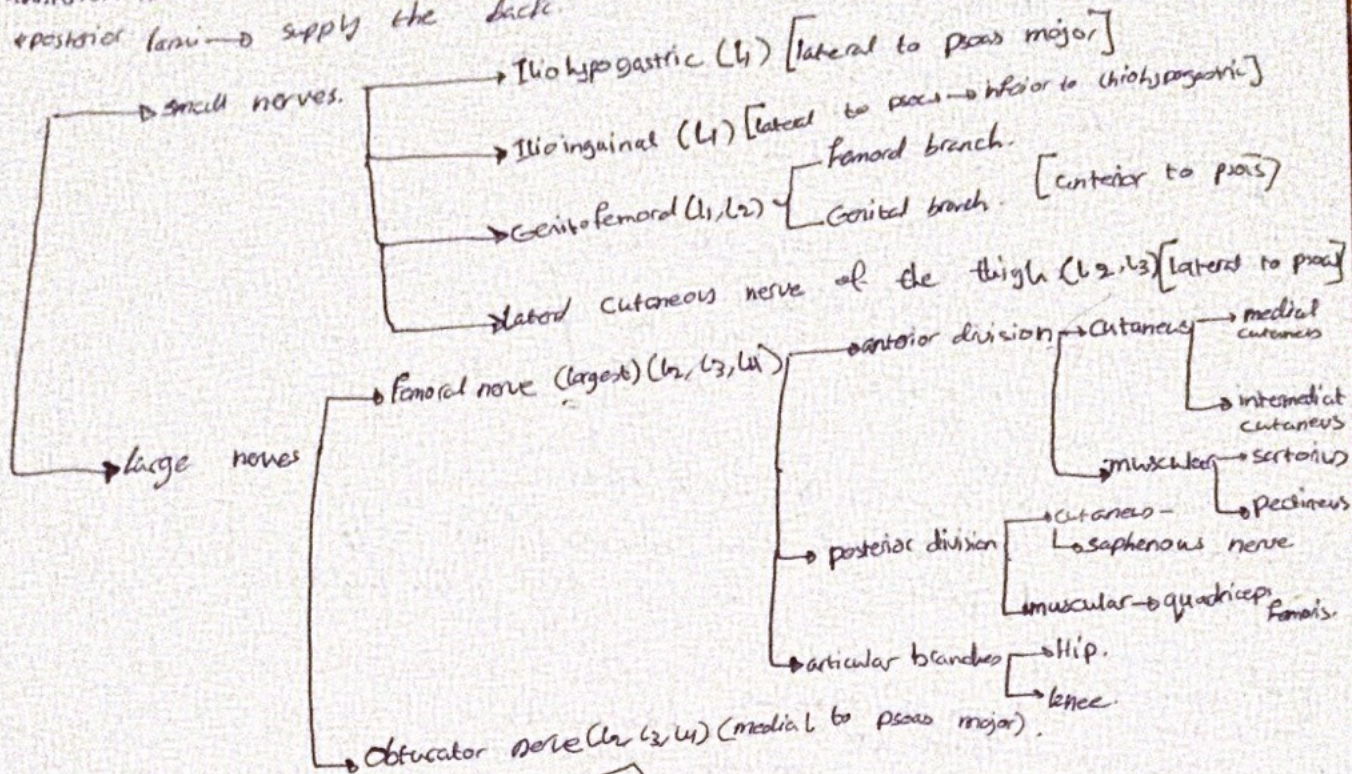 *posterior rami→ supply the back.
small nerves.
Iliohypogastric (L1) [lateral to psoas major]
Ilioinguinal (L1) [lateral to psoas → inferior to Iliohypogastric]
Genitofemoral (L1, L2)
femoral branch.
Genital branch.
[anterior to psoas]
lateral cutaneous nerve of the thigh (L2, L3) [lateral to psoas]
large nerves
femoral nerve (largest) (L2, L3, L4)
anterior division
cutaneus
medial
cutaneus
intermediat
cutaneus
muscular
sartorius
pectineus
posterior division
cutaneus
saphenous nerve
muscular → quadriceps
femoris.
articular branches
Hip.
knee.
Obturator nerve (L2, L3, L4) (medial to psoas major).